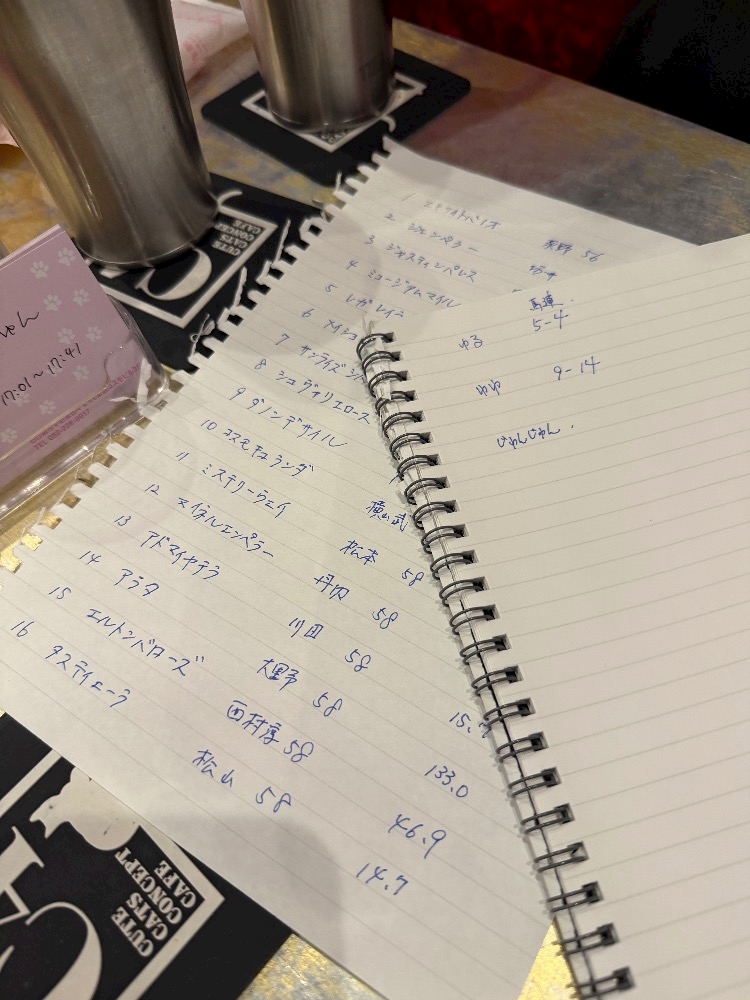 CUTE
CATS
CONCEPT
CAFE
ゅん
17:01〜17:41
1
2
3 ジャスティンパレス
4 ミュージアムマイル
5 レガレイラ
6 メイショ
7 サンライズ
8 シュヴァリエローズ
9 ダノンデサイル
10 コスモキュランダ 横山武
11 ミステリーウェイ 松本 58
12 マイネルエンペラー 丹内 58
13 アドマイヤテラ 川田 58 15.
14 アラタ 大野 58 133.0
15 エルトンバローズ 西村淳 58 46.9
16 タスティエーラ 松山 58 14.7
56
馬連
ゆる 5-4
ゆゆ 9-14
じゅんじゅん.
CUTE
CATS
CONCEPT
CAFE